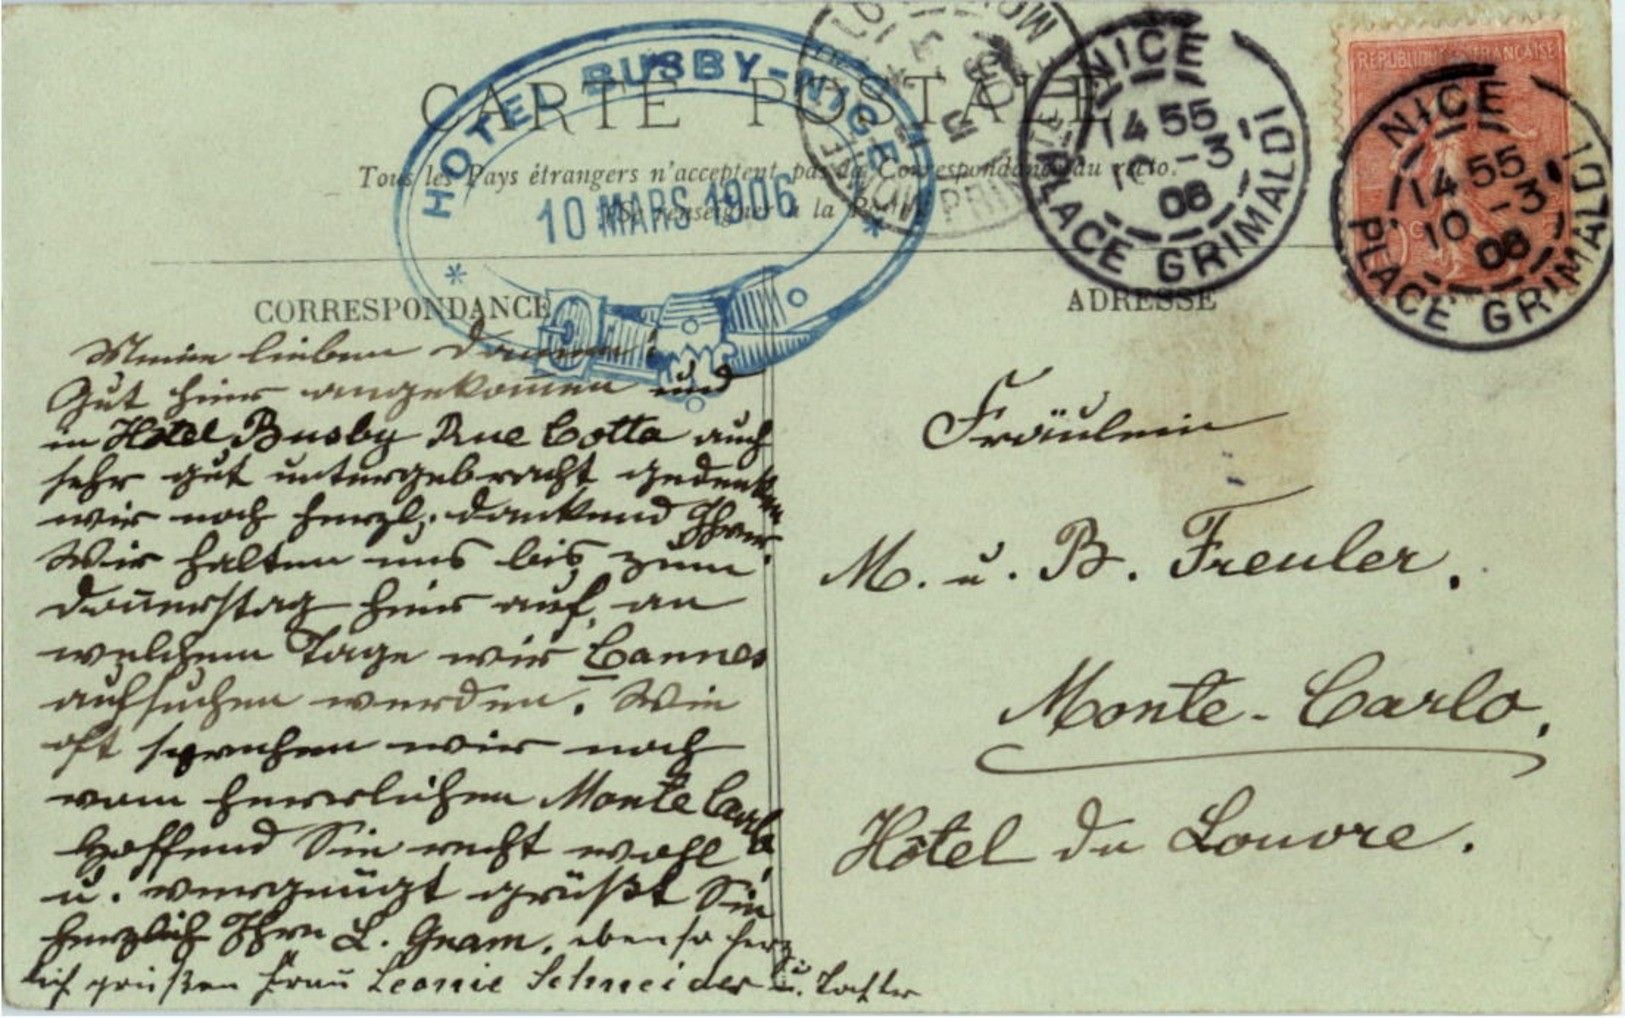 CARTE POSTALE
Tous les Pays étrangers n'acceptent pas la Correspondance au recto.
Se renseigner à la Poste
HOTEL BUSBY-NICE
10 MARS 1906
NICE
14 55
10 -3
06
PLACE GRIMALDI
REPUBLIQUE FRANÇAISE
NICE
14 55
10 -3
06
PLACE GRIMALDI
CORRESPONDANCE
ADRESSE
Meine lieben Damen!
Gut hier angekom̅en und
in Hôtel Busby Rue Cotta auch
sehr gut untergebracht gedenken
wir noch herzl. dankend Ihrer.
Wir halten uns bis zum
Don̅erstag hier auf, an
welchem Tage wir Cannes
aufsuchen werden. Wie
oft sprechen wir noch
vom herrlichen Monte Carlo
Hoffend Sie recht wohl
u. vergnügt grüßt Sie
herzlich Ihre L. Gnam. ebenso herz
lich grüßen Frau Leonie Schneider u. Tochter
Fräulein
M. u. B. Freuler.
Monte-Carlo.
Hôtel du Louvre.